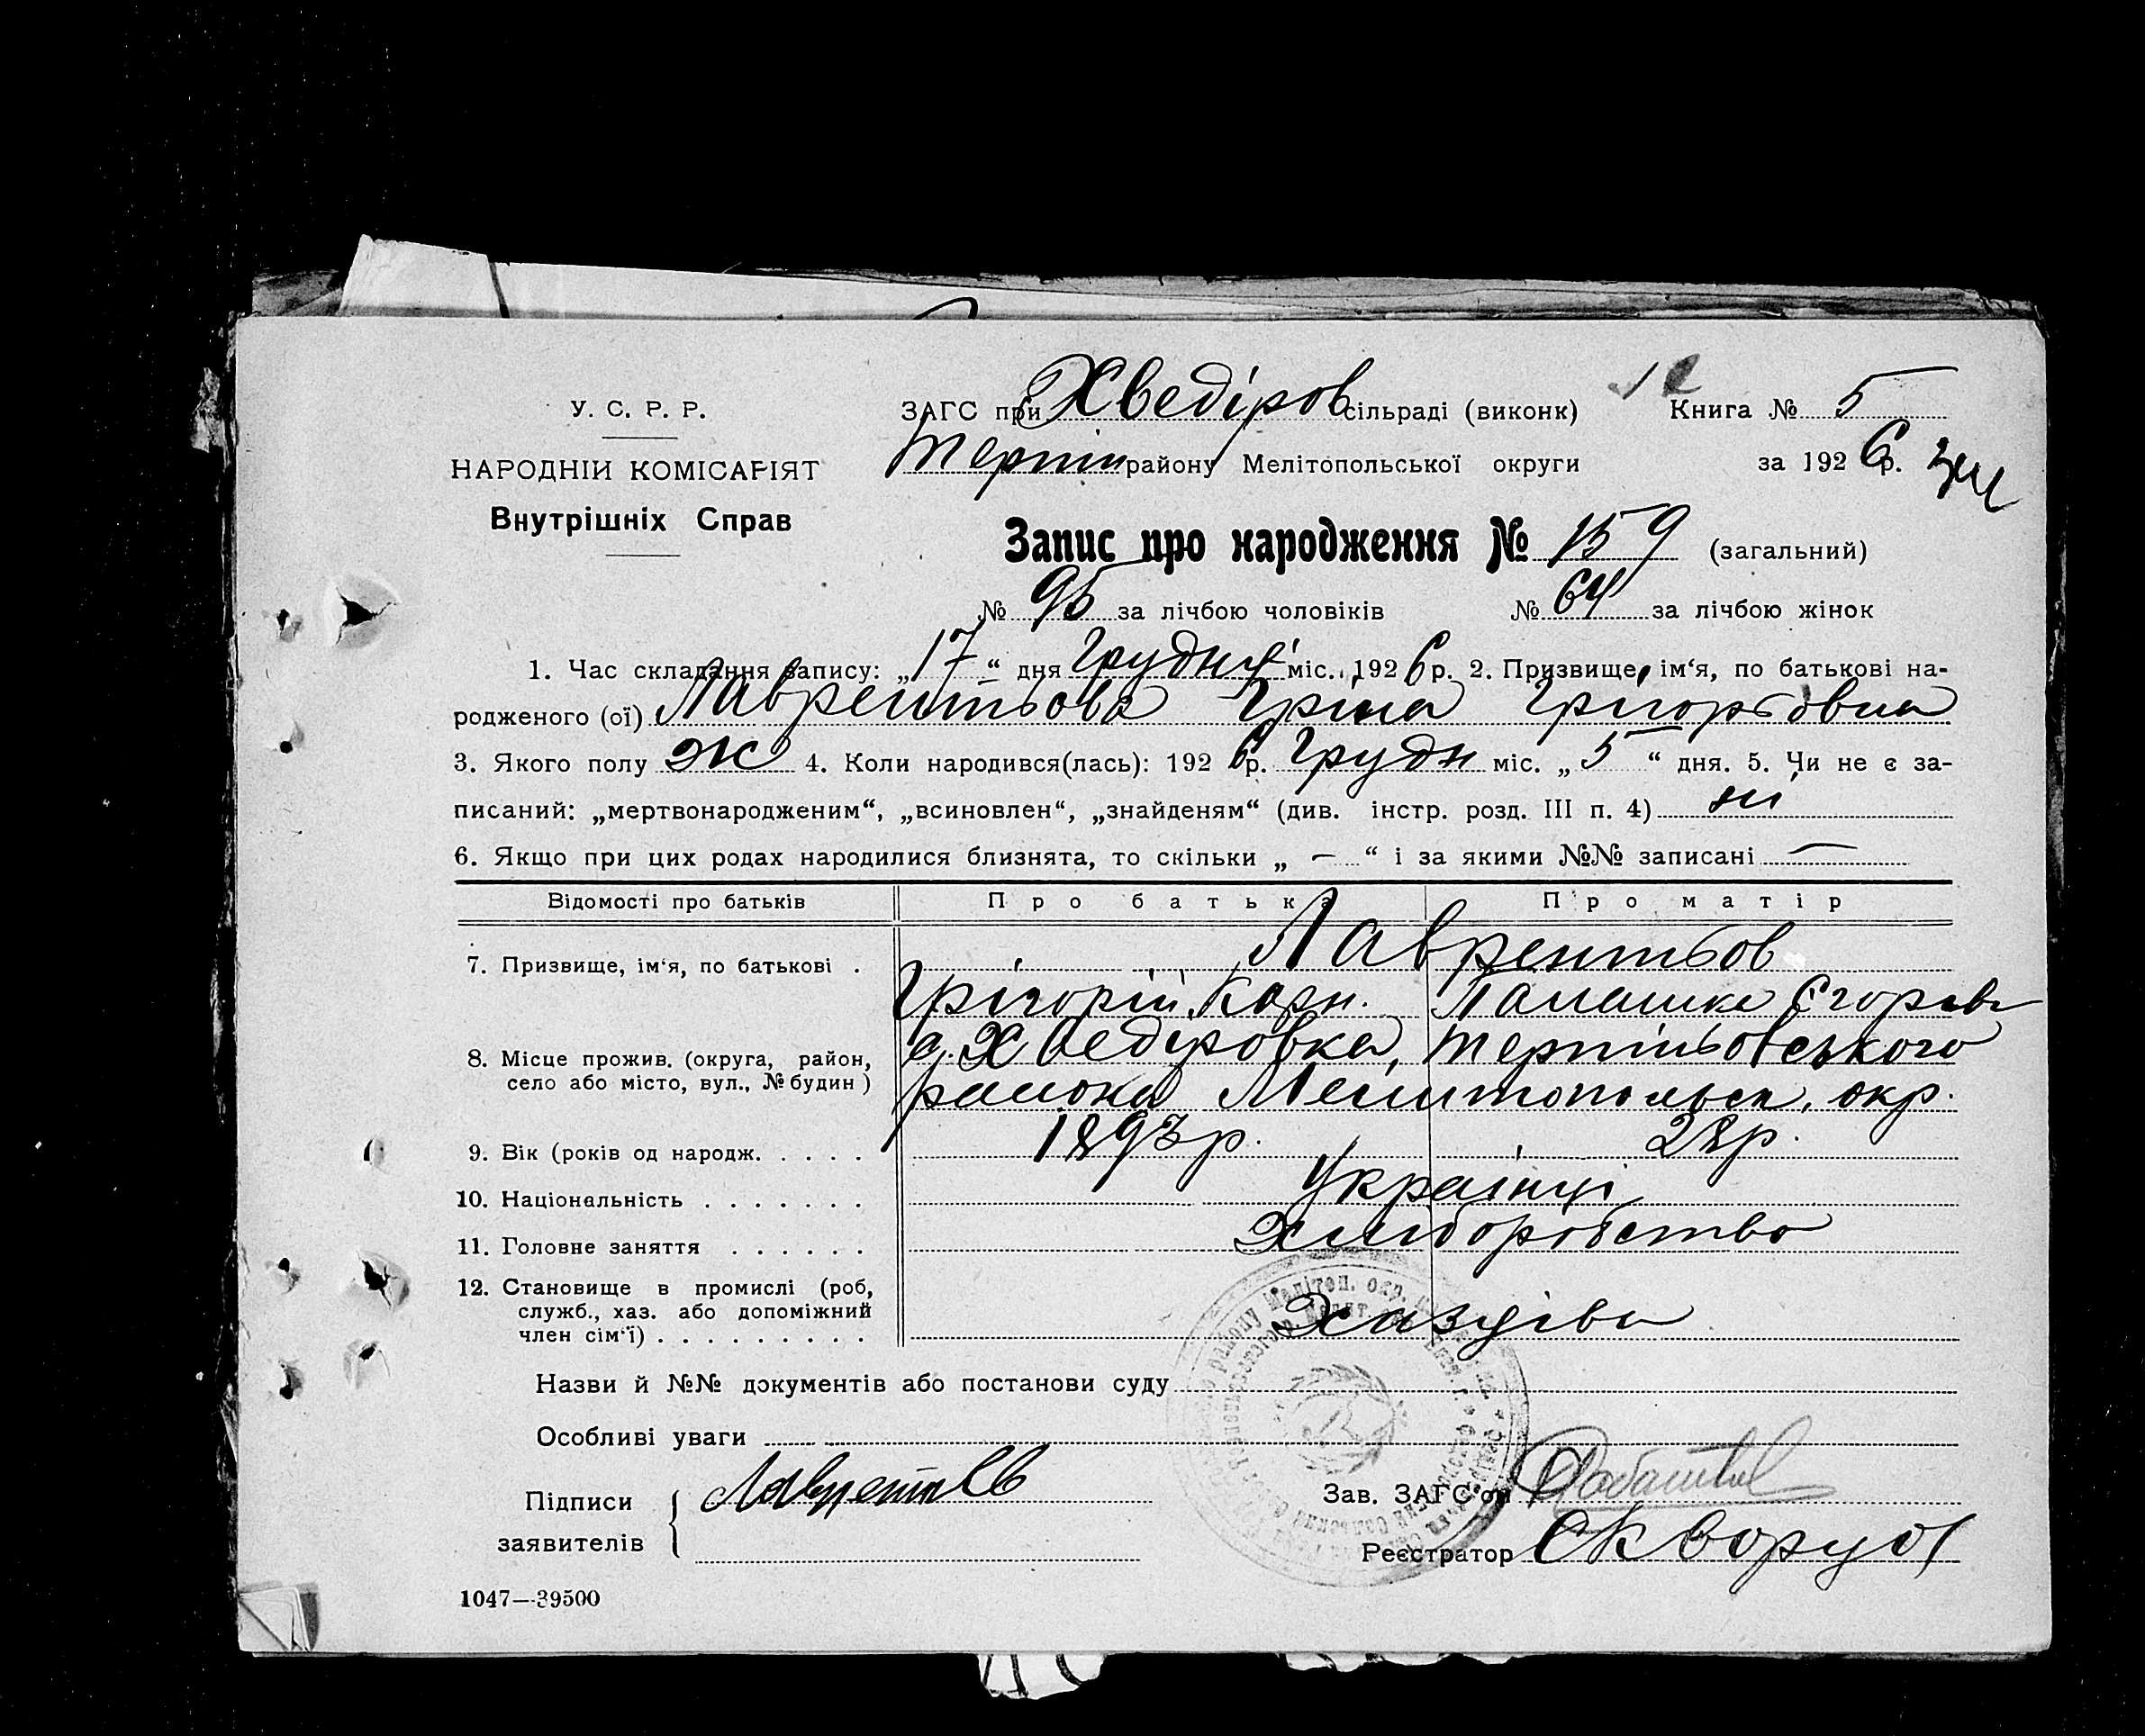 У. С. Р. Р.
НАРОДНІЙ КОМІСАРІЯТ
Внутрішніх Справ
ЗАГС при Хведіров сільраді (виконк) Книга № 5
Терпін району Мелітопольської округи за 1926 р.
Запис про народження № 159 (загальний)
№ 95 за лічбою чоловіків № 64 за лічбою жінок
1. Час складання запису: „17“ дня Грудня міс. 1926 р. 2. Призвище, ім‘я, по батькові на-
родженого (ої) Лаврентьова Іріна Грігорьовна
3. Якого полу Ж 4. Коли народився(лась): 1926 р. Грудн міс. „5“ дня. 5. Чи не є за-
писаний: „мертвонародженим“, „всиновлен“, „знайденям“ (див. інстр. розд. III п. 4) ні
6. Якщо при цих родах народилися близнята, то скільки „ – “ і за якими №№ записані —
Відомості про батьків Про батька Про матір
7. Призвище, ім‘я, по батькові . Лаврентьов
Грігорій Карн. Палашка Єгоровн
8. Місце прожив. (округа, район,
село або місто, вул., № будин)
с. Хведіровка, Терпіньовського
района Мелитопольск. окр.
9. Вік (років од народж. . . . . 1893 р. 28 р.
10. Національність . . . . . . . Українці
11. Головне заняття . . . . . . Хліборобство
12. Становище в промислі (роб,
служб., хаз. або допоміжний
член сім‘ї) . . . . . . . . . Хазяїва
Назви й №№ документів або постанови суду
Особливі уваги
Підписи
заявителів
Лаврентьев
Зав. ЗАГС‘ом
Реєстратор Скворцо
1047—39500